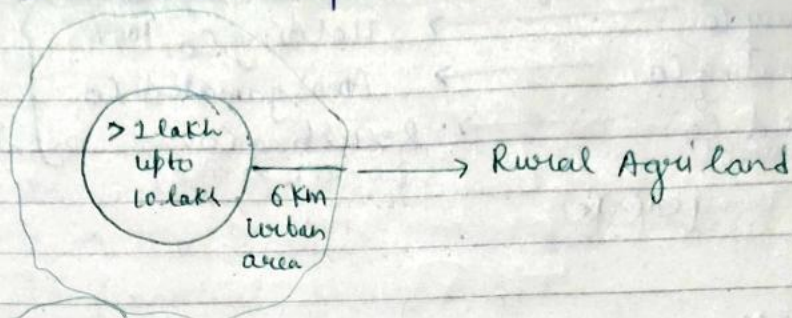 > 1 lakh
upto
10 lakh
6 Km
urban
area
Rural Agri land